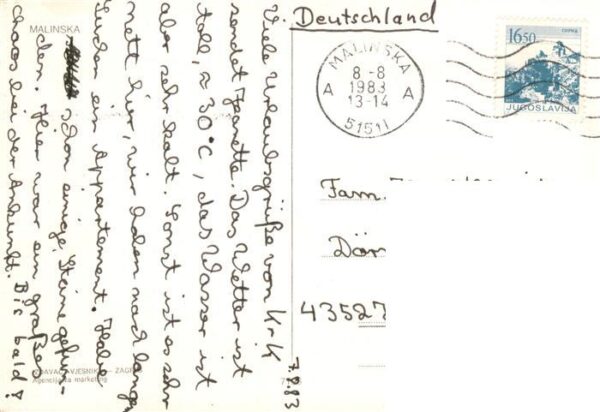 MALINSKA
Deutschland
MALINSKA
8 -8
1983
13-14
A A
51511
16.50
JUGOSLAVIJA
Viele Urlaubsgrüße von Krk
sendet Janette. Das Wetter ist
toll, ≈ 30°C, das Wasser ist
aber sehr kalt. Sonst ist es sehr
nett hier, wir haben nach langem
Suchen ein Appartement. Habe
schon einige Steine gefun-
den. Hier war ein großes
Chaos bei der Ankunft. Bis bald!
7.8.83
Fam.
Där
43527
VJESNIK – ZAGREB
Agencija za marketing